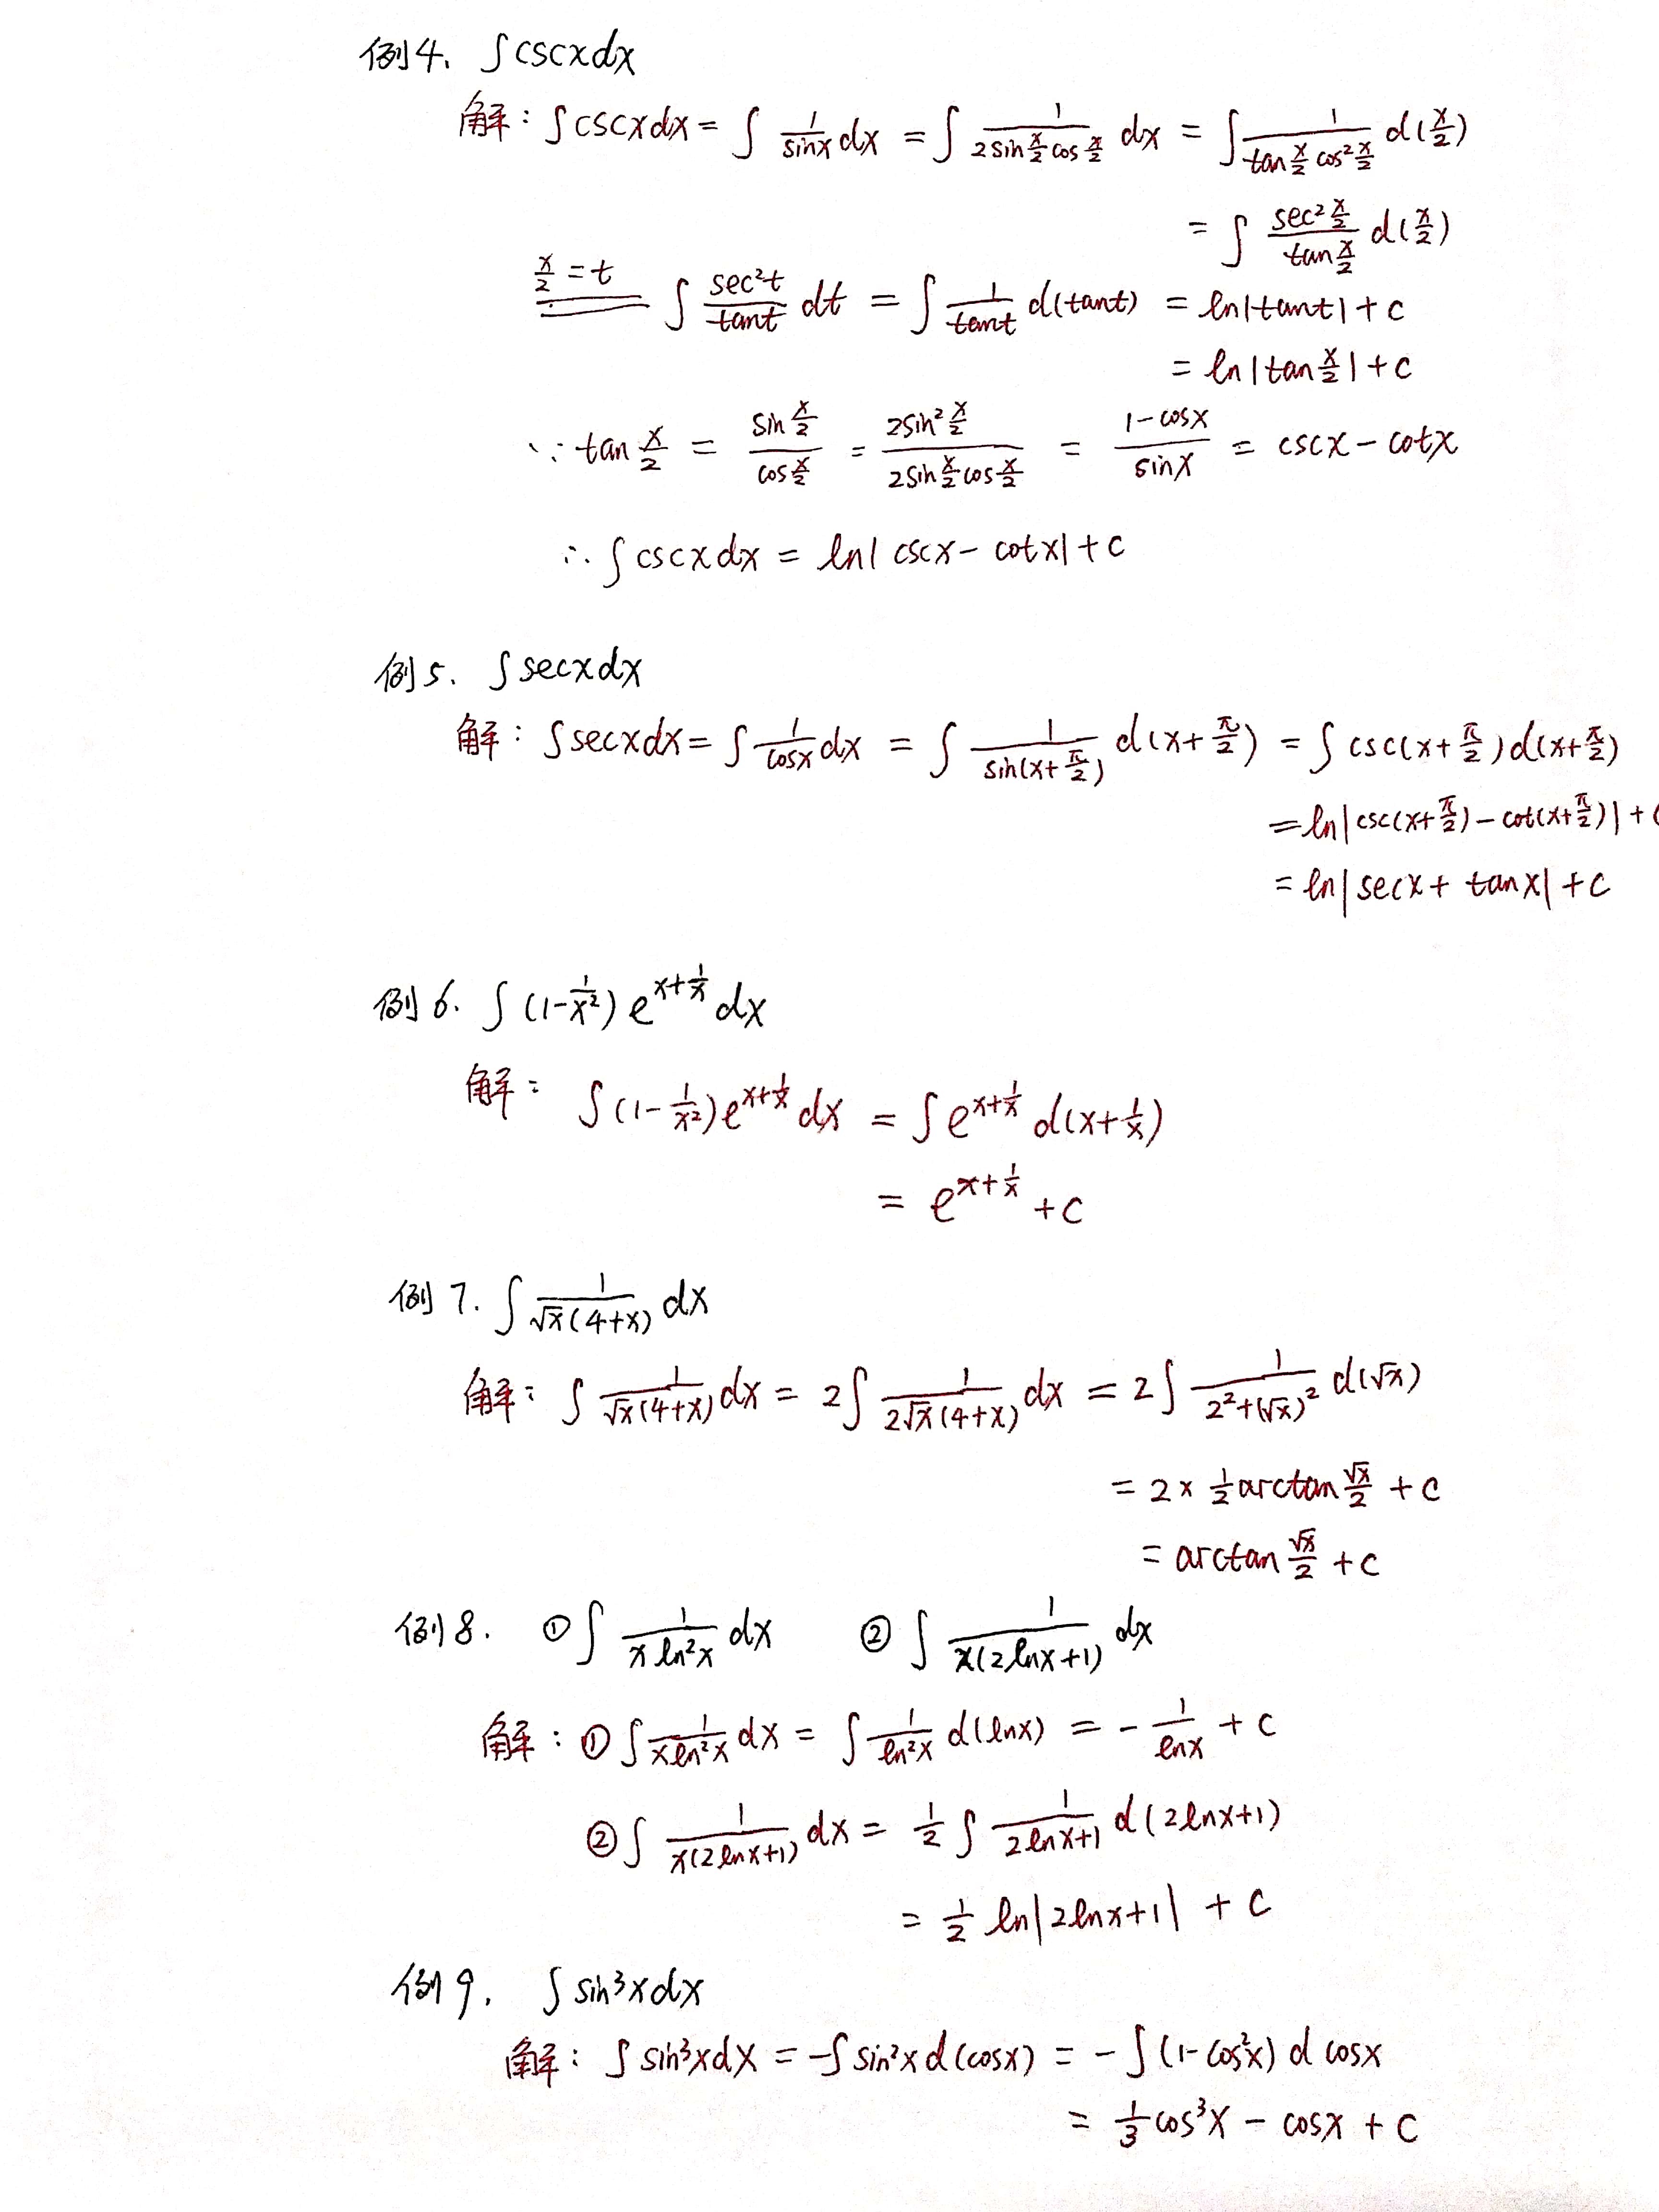 例4、∫cscxdx
解：∫cscxdx = ∫ \frac{1}{sinx} dx = ∫ \frac{1}{2sin\frac{x}{2}cos\frac{x}{2}} dx = ∫ \frac{1}{tan\frac{x}{2}cos²\frac{x}{2}} d(\frac{x}{2})
= ∫ \frac{sec²\frac{x}{2}}{tan\frac{x}{2}} d(\frac{x}{2})
\frac{x}{2}=t ∫ \frac{sec²t}{tant} dt = ∫ \frac{1}{tant} d(tant) = ln|tant|+c
= ln|tan\frac{x}{2}|+c
∵ tan\frac{x}{2} = \frac{sin\frac{x}{2}}{cos\frac{x}{2}} = \frac{2sin²\frac{x}{2}}{2sin\frac{x}{2}cos\frac{x}{2}} = \frac{1-cosx}{sinx} = cscx-cotx
∴ ∫cscxdx = ln|cscx-cotx|+c
例5、∫secxdx
解：∫secxdx = ∫\frac{1}{cosx}dx = ∫ \frac{1}{sin(x+\frac{π}{2})} d(x+\frac{π}{2}) = ∫csc(x+\frac{π}{2})d(x+\frac{π}{2})
= ln|csc(x+\frac{π}{2})-cot(x+\frac{π}{2})|+c
= ln|secx+tanx|+c
例6. ∫(1-\frac{1}{x²})e^{x+\frac{1}{x}}dx
解：∫(1-\frac{1}{x²})e^{x+\frac{1}{x}}dx = ∫e^{x+\frac{1}{x}}d(x+\frac{1}{x})
= e^{x+\frac{1}{x}}+c
例7. ∫\frac{1}{√x(4+x)}dx
解：∫\frac{1}{√x(4+x)}dx = 2∫\frac{1}{2√x(4+x)}dx = 2∫\frac{1}{2²+(√x)²}d(√x)
= 2×\frac{1}{2}arctan\frac{√x}{2}+c
= arctan\frac{√x}{2}+c
例8. ①∫\frac{1}{xln²x}dx ②∫\frac{1}{x(2lnx+1)}dx
解：①∫\frac{1}{xln²x}dx = ∫\frac{1}{ln²x}d(lnx) = -\frac{1}{lnx}+c
②∫\frac{1}{x(2lnx+1)}dx = \frac{1}{2}∫\frac{1}{2lnx+1}d(2lnx+1)
= \frac{1}{2}ln|2lnx+1|+c
例9. ∫sin³xdx
解：∫sin³xdx = -∫sin²xd(cosx) = -∫(1-cos²x)dcosx
= \frac{1}{3}cos³x-cosx+c